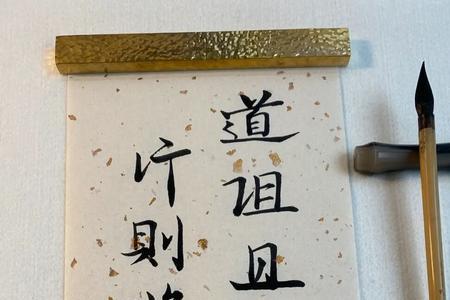 道阻且
行则